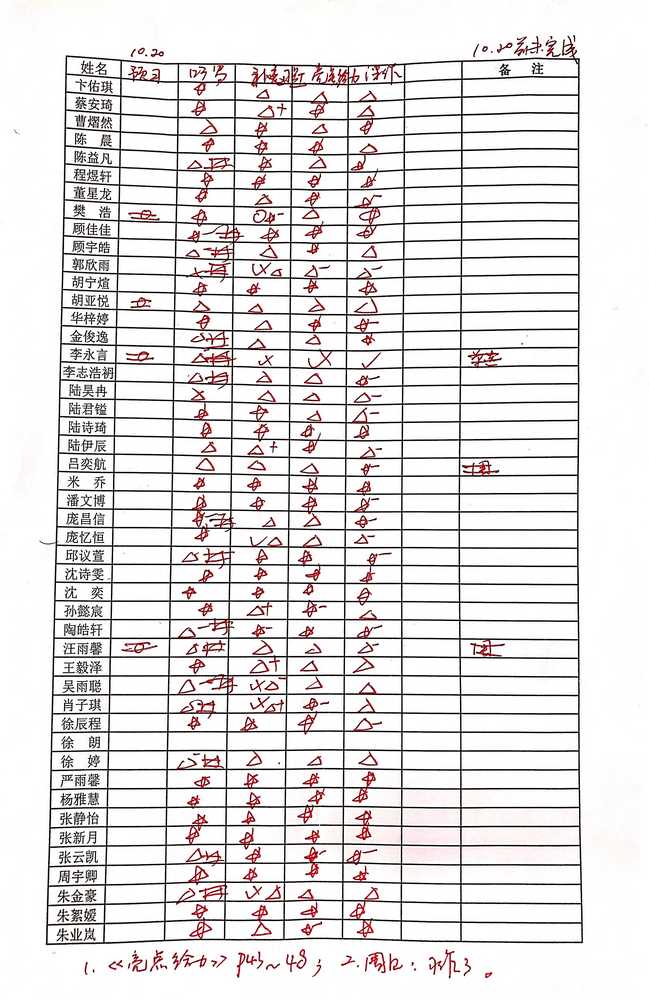 10.20 10.20前未完成
姓名 预习 听写 补充习题 亮点给力 习作 备 注
卞佑琪 ☆ △ △ △
蔡安琦 ☆ △+ ☆ △
曹熠然 △ ☆ △ ☆
陈 晨 ☆ ☆ ☆ △
陈益凡 △ ☆ △ ☆
程煜轩 ☆ ☆ ☆ ☆
董星龙 ☆ △ ☆ ☆-
樊 浩 ☆ △ ☆
顾佳佳 ☆ ☆ ☆ ☆
顾宇皓 △ △ ☆ △
郭欣雨 ×△ △- △-
胡宁煊 ☆ ☆ ☆ ☆
胡亚悦 △ △ △ △
华梓婷 ☆ △ ☆ ☆-
金俊逸 △ △ ☆
李永言 △ × × ✓
李志浩礽 △ △ △ ☆-
陆昊冉 × △ △ △-
陆君镒 ☆ ☆ △ △-
陆诗琦 ☆ ☆ ☆ ☆
陆伊辰 △ △+ ☆ △-
吕奕航 △ △ △ ☆-
米 乔 ☆ ☆ ☆ ☆
潘文博 ☆ ☆ ☆ ☆-
庞昌信 ☆ △ △ ☆-
庞忆恒 ☆ ✓△ △ △-
邱议萱 △ ☆ ☆ ☆-
沈诗雯 ☆ ☆ ☆ ☆
沈 奕 ☆ ☆ ☆ ☆
孙懿宸 ☆ △+ ☆- △
陶皓轩 △ ☆- ☆ ☆-
汪雨馨 △ △ △ △-
王毅泽 ☆ △+ △ △
吴雨聪 △ ×△- △ △
肖子琪 △ ×△+ ☆- △
徐辰程 ☆ ☆ ☆ △-
徐 朗
徐 婷 △ △ △ △
严雨馨 ☆ ☆ ☆ ☆
杨雅慧 ☆ ☆ ☆ ☆
张静怡 ☆ ☆ ☆ ☆
张新月 ☆ ☆ ☆ ☆
张云凯 △ ☆ ☆- ☆-
周宇卿 ☆ ☆ ☆ ☆
朱金豪 △ ×△ △ △
朱絮媛 ☆ ☆ ☆ ☆
朱业岚 ☆ △ ☆- ☆
1. 《亮点给力》P43~48； 2. 周日：习作3。